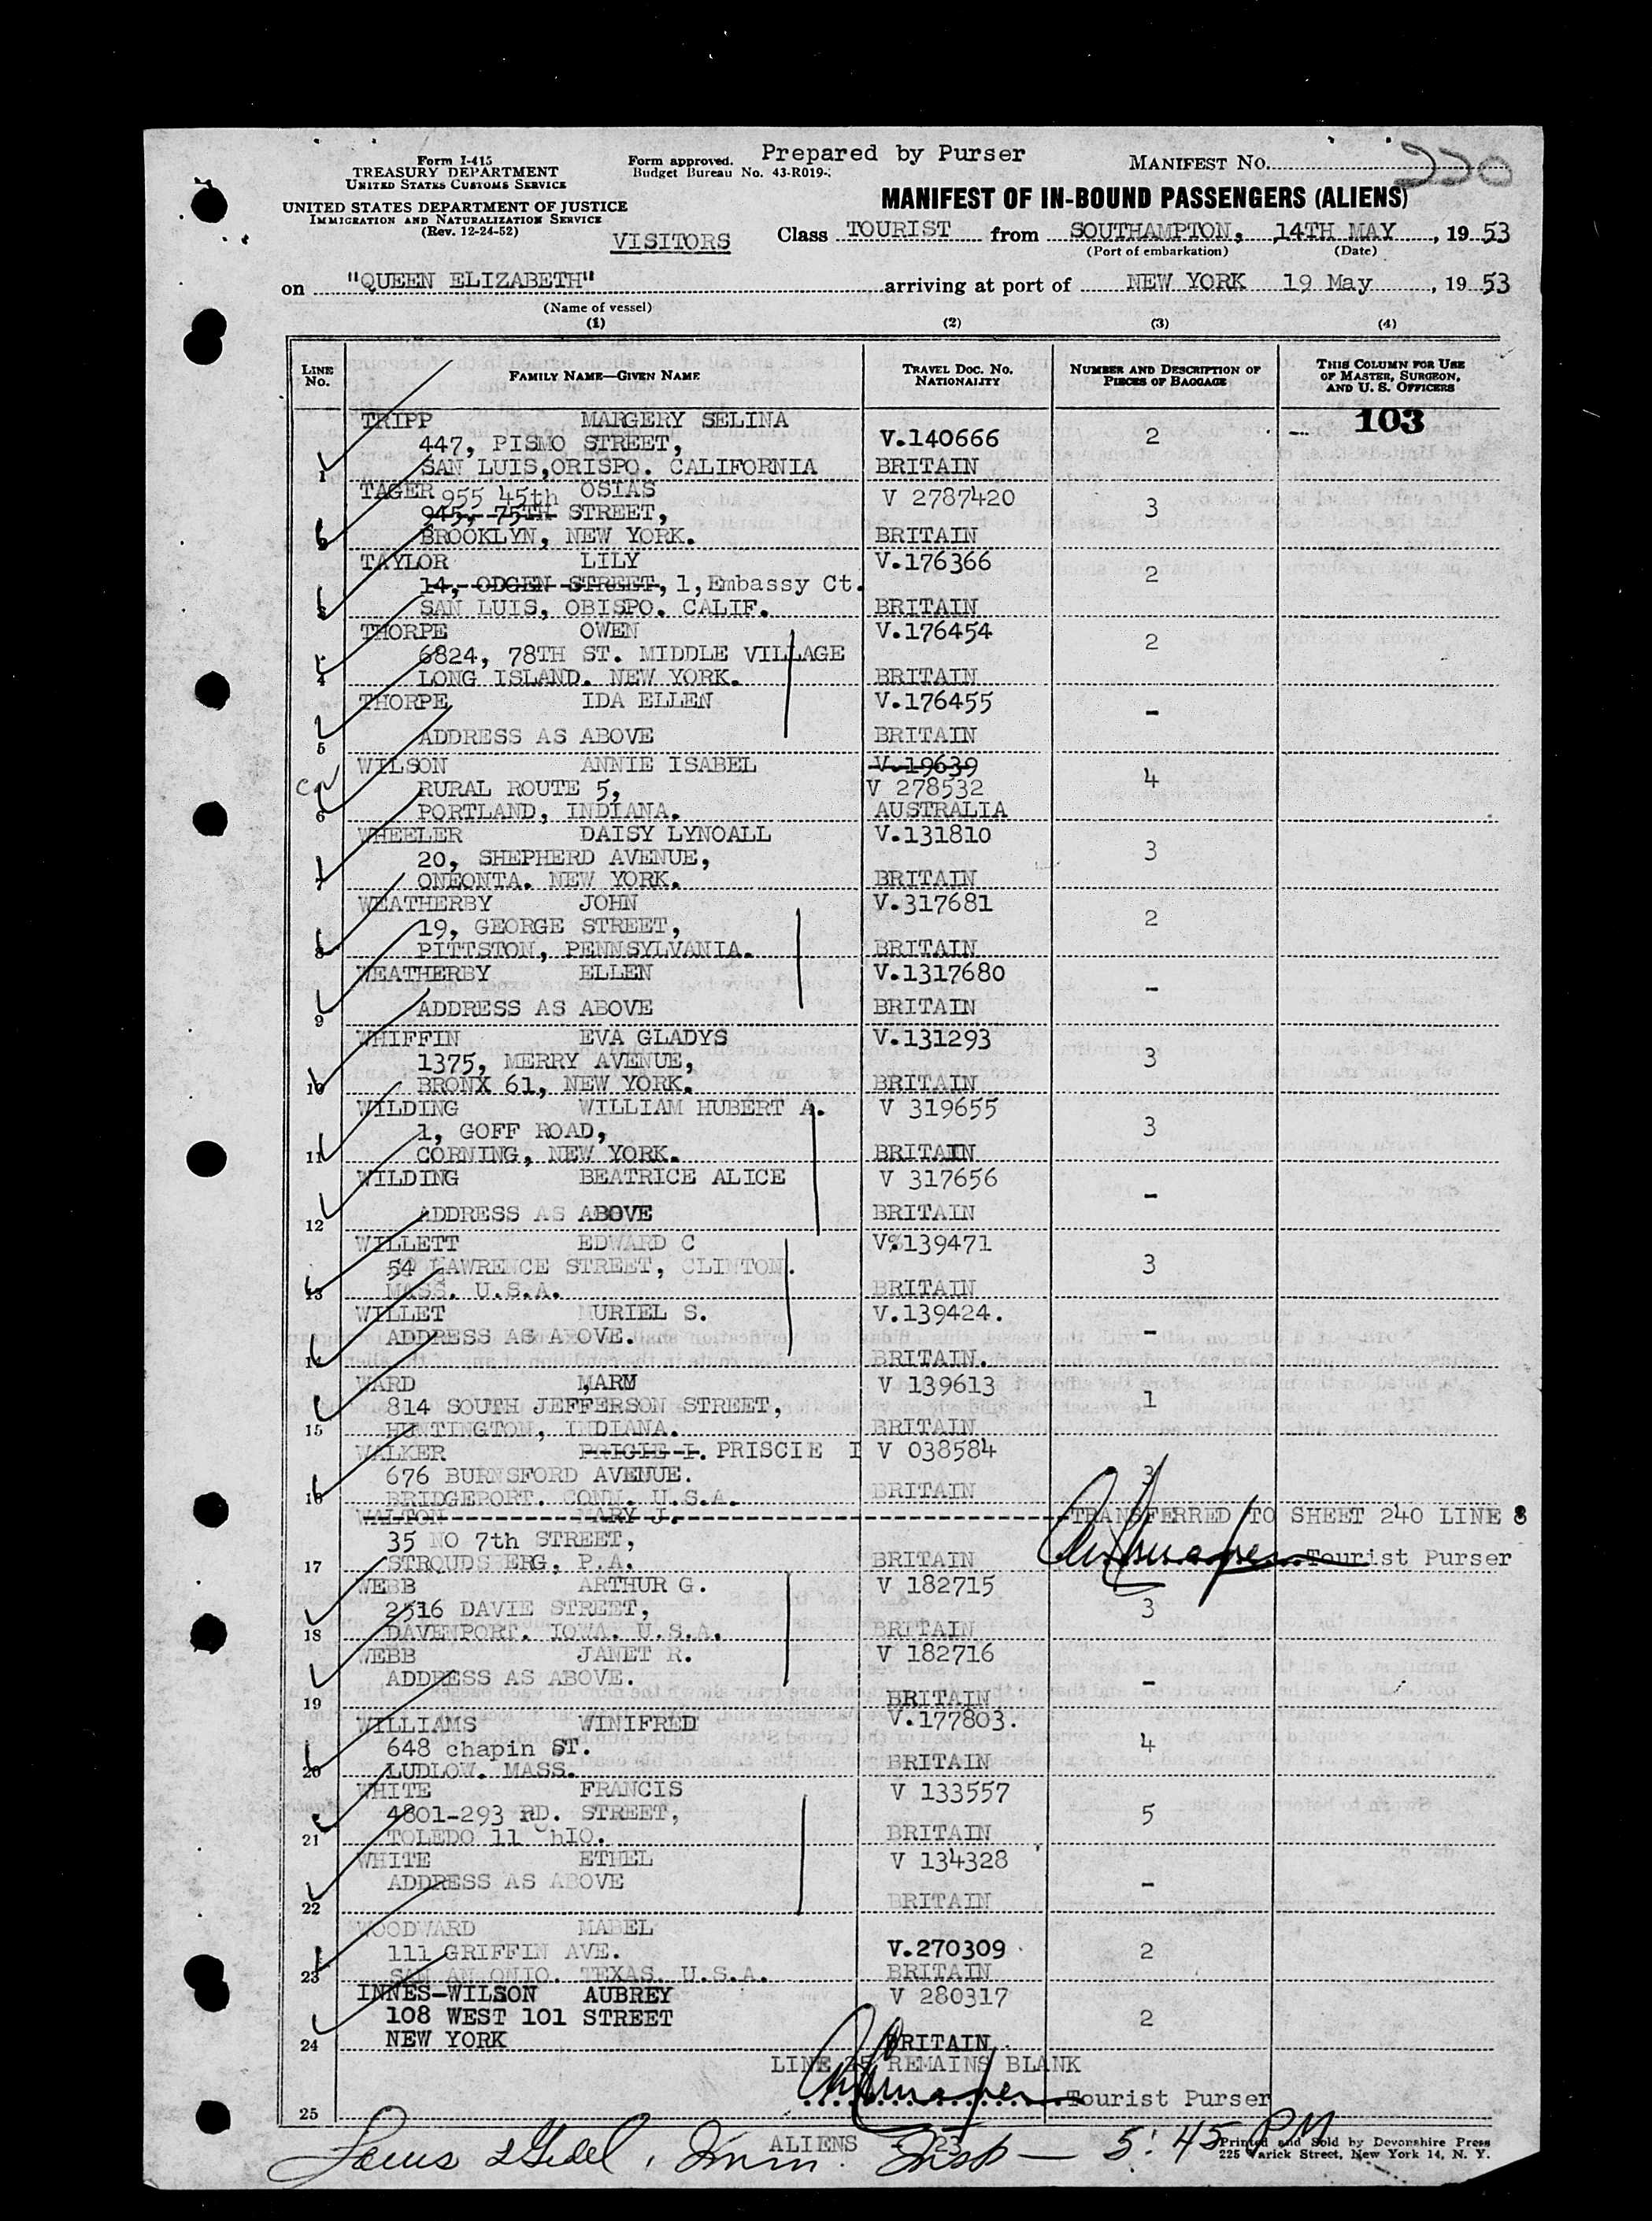 Form I-415
TREASURY DEPARTMENT
UNITED STATES CUSTOMS SERVICE
UNITED STATES DEPARTMENT OF JUSTICE
IMMIGRATION AND NATURALIZATION SERVICE
(Rev. 12-24-52)
Form approved.
Budget Bureau No. 43-R019-
Prepared by Purser
MANIFEST No. 220
MANIFEST OF IN-BOUND PASSENGERS (ALIENS)
VISITORS Class TOURIST from SOUTHAMPTON, 14TH MAY, 1953
(Port of embarkation) (Date)
on "QUEEN ELIZABETH" arriving at port of NEW YORK 19 May, 1953
(Name of vessel)
(1) (2) (3) (4)
LINE No. FAMILY NAME—GIVEN NAME TRAVEL DOC. NO. NATIONALITY NUMBER AND DESCRIPTION OF PIECES OF BAGGAGE THIS COLUMN FOR USE OF MASTER, SURGEON, AND U. S. OFFICERS
103
TRIPP MARGERY SELINA
447, PISMO STREET, V.140666 2
1 SAN LUIS,ORISPO. CALIFORNIA BRITAIN
TAGER 955 45th OSIAS V 2787420
945, 75TH STREET, 3
BROOKLYN, NEW YORK. BRITAIN
TAYLOR LILY V.176366
14, ODGEN STREET, 1,Embassy Ct. 2
SAN LUIS, OBISPO. CALIF. BRITAIN
THORPE OWEN V.176454
6824, 78TH ST. MIDDLE VILLAGE 2
4 LONG ISLAND. NEW YORK. BRITAIN
THORPE IDA ELLEN V.176455
-
5 ADDRESS AS ABOVE BRITAIN
WILSON ANNIE ISABEL V.19639
RURAL ROUTE 5, V 278532 4
6 PORTLAND, INDIANA. AUSTRALIA
WHEELER DAISY LYNOALL V.131810
20, SHEPHERD AVENUE, 3
7 ONEONTA. NEW YORK. BRITAIN
WEATHERBY JOHN V.317681
19, GEORGE STREET, 2
8 PITTSTON, PENNSYLVANIA. BRITAIN
WEATHERBY ELLEN V.1317680
-
9 ADDRESS AS ABOVE BRITAIN
WHIFFIN EVA GLADYS V.131293
1375, MERRY AVENUE, 3
10 BRONX 61, NEW YORK. BRITAIN
WILDING WILLIAM HUBERT A. V 319655
1, GOFF ROAD, 3
11 CORNING, NEW YORK. BRITAIN
WILDING BEATRICE ALICE V 317656
-
12 ADDRESS AS ABOVE BRITAIN
WILLETT EDWARD C V%139471
54 LAWRENCE STREET, CLINTON. 3
13 MASS. U.S.A. BRITAIN
WILLET MURIEL S. V.139424.
ADDRESS AS ABOVE. -
14 BRITAIN.
WARD MARY V 139613
814 SOUTH JEFFERSON STREET, 1
15 HUNTINGTON, INDIANA. BRITAIN
WALKER PRIGIE I. PRISCIE I V 038584
676 BURNSFORD AVENUE. 3
16 BRIDGEPORT. CONN. U.S.A. BRITAIN
WALTON MARY J. TRANSFERRED TO SHEET 240 LINE 8
35 NO 7th STREET,
17 STROUDSBERG, P.A. BRITAIN Tourist Purser
WEBB ARTHUR G. V 182715
2516 DAVIE STREET, 3
18 DAVENPORT. IOWA. U.S.A. BRITAIN
WEBB JANET R. V 182716
ADDRESS AS ABOVE. -
19 BRITAIN
WILLIAMS WINIFRED V.177803.
648 chapin ST. 4
20 LUDLOW. MASS. BRITAIN
WHITE FRANCIS V 133557
4801-293 RD. STREET, 5
21 TOLEDO 11 OhIO. BRITAIN
WHITE ETHEL V 134328
ADDRESS AS ABOVE -
22 BRITAIN
WOODWARD MABEL
111 GRIFFIN AVE. V.270309 2
23 SAN ANTONIO. TEXAS. U.S.A. BRITAIN
INNES-WILSON AUBREY V 280317
108 WEST 101 STREET 2
24 NEW YORK BRITAIN
LINE 25 REMAINS BLANK
Tourist Purser
25
ALIENS 23
Imm. Insp — 5:45 PM
Printed and Sold by Devonshire Press
225 Varick Street, New York 14, N. Y.